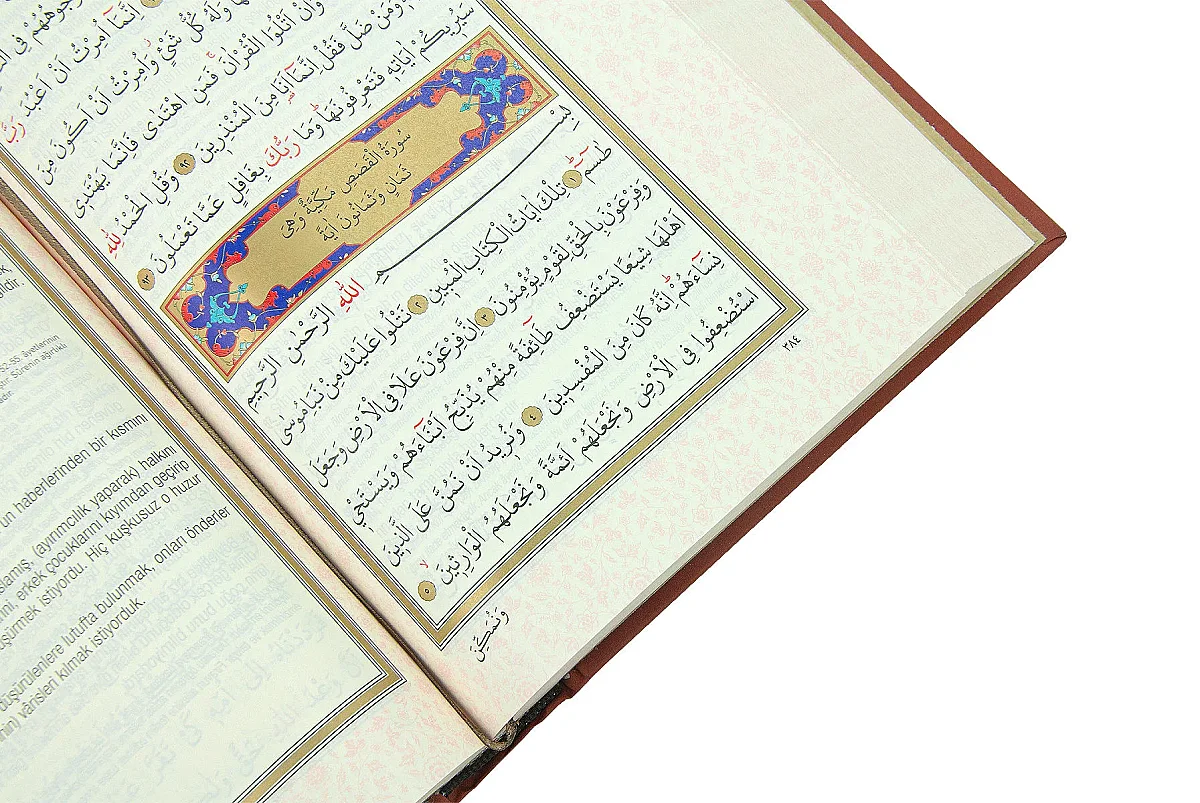 وُجُوهُهُمْ فِى
اِنَّمَٓا اُمِرْتُ اَنْ اَعْبُدَ رَبَّ
وَلَهُ كُلُّ شَيْءٍ وَاُمِرْتُ اَنْ اَكُونَ مِنَ
وَاَنْ اَتْلُوَا الْقُرْاٰنَ فَمَنِ اهْتَدٰى فَاِنَّمَا يَهْتَدٖى
وَمَنْ ضَلَّ فَقُلْ اِنَّمَٓا اَنَا مِنَ الْمُنْذِرٖينَ ٩٢ وَقُلِ الْحَمْدُ لِلّٰهِ
سَيُرٖيكُمْ اٰيَاتِهٖ فَتَعْرِفُونَهَا وَمَا رَبُّكَ بِغَافِلٍ عَمَّا تَعْمَلُونَ ٩٣
سُورَةُ الْقَصَصِ مَكِّيَّةٌ وَهِىَ
ثَمَانٍ وَثَمَانُونَ اٰيَةً
بِسْمِ اللّٰهِ الرَّحْمٰنِ الرَّحٖيمِ
طٰسٓمٓ ١ تِلْكَ اٰيَاتُ الْكِتَابِ الْمُبٖينِ ٢ نَتْلُوا عَلَيْكَ مِنْ نَبَاِ مُوسٰى
وَفِرْعَوْنَ بِالْحَقِّ لِقَوْمٍ يُؤْمِنُونَ ٣ اِنَّ فِرْعَوْنَ عَلَا فِى الْاَرْضِ وَجَعَلَ
اَهْلَهَا شِيَعًا يَسْتَضْعِفُ طَٓائِفَةً مِنْهُمْ يُذَبِّحُ اَبْنَٓاءَهُمْ وَيَسْتَحْيٖ
نِسَٓاءَهُمْ اِنَّهُ كَانَ مِنَ الْمُفْسِدٖينَ ٤ وَنُرٖيدُ اَنْ نَمُنَّ عَلَى الَّذٖينَ
اسْتُضْعِفُوا فِى الْاَرْضِ وَنَجْعَلَهُمْ اَئِمَّةً وَنَجْعَلَهُمُ الْوَارِثٖينَ ٥
٣٨٤
وَنُمَكِّنَ
52-55. âyetlerinin
Sûrenin ağırlıklı
haberlerinden bir kısmını
(ayrımcılık yaparak) halkını
erkek çocuklarını kıyımdan geçirip
istiyordu. Hiç kuşkusuz o huzur
düşürülenlere lutufta bulunmak, onları önderler
vârisleri kılmak istiyorduk.